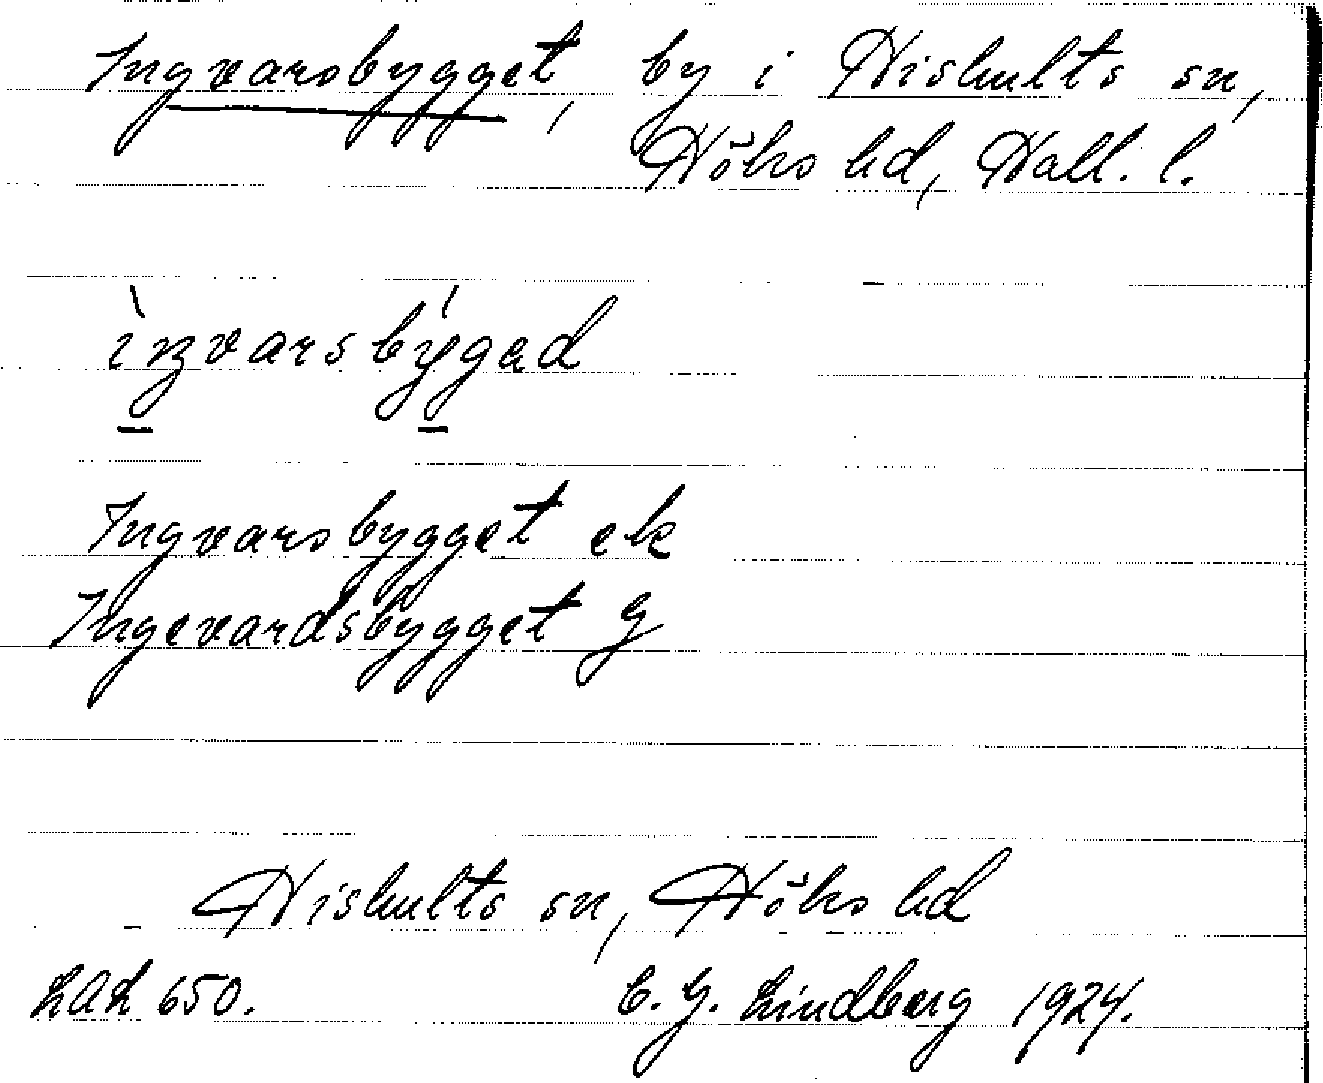 Ingvarsbygget, by i Hishults sn,
Höks hd, Hall. l.
ìŋvarsbýgəd
Ingvarsbygget ek
Ingevardsbygget G
Hishults sn, Höks hd
LAL 650. C. G. Lindberg 1924.